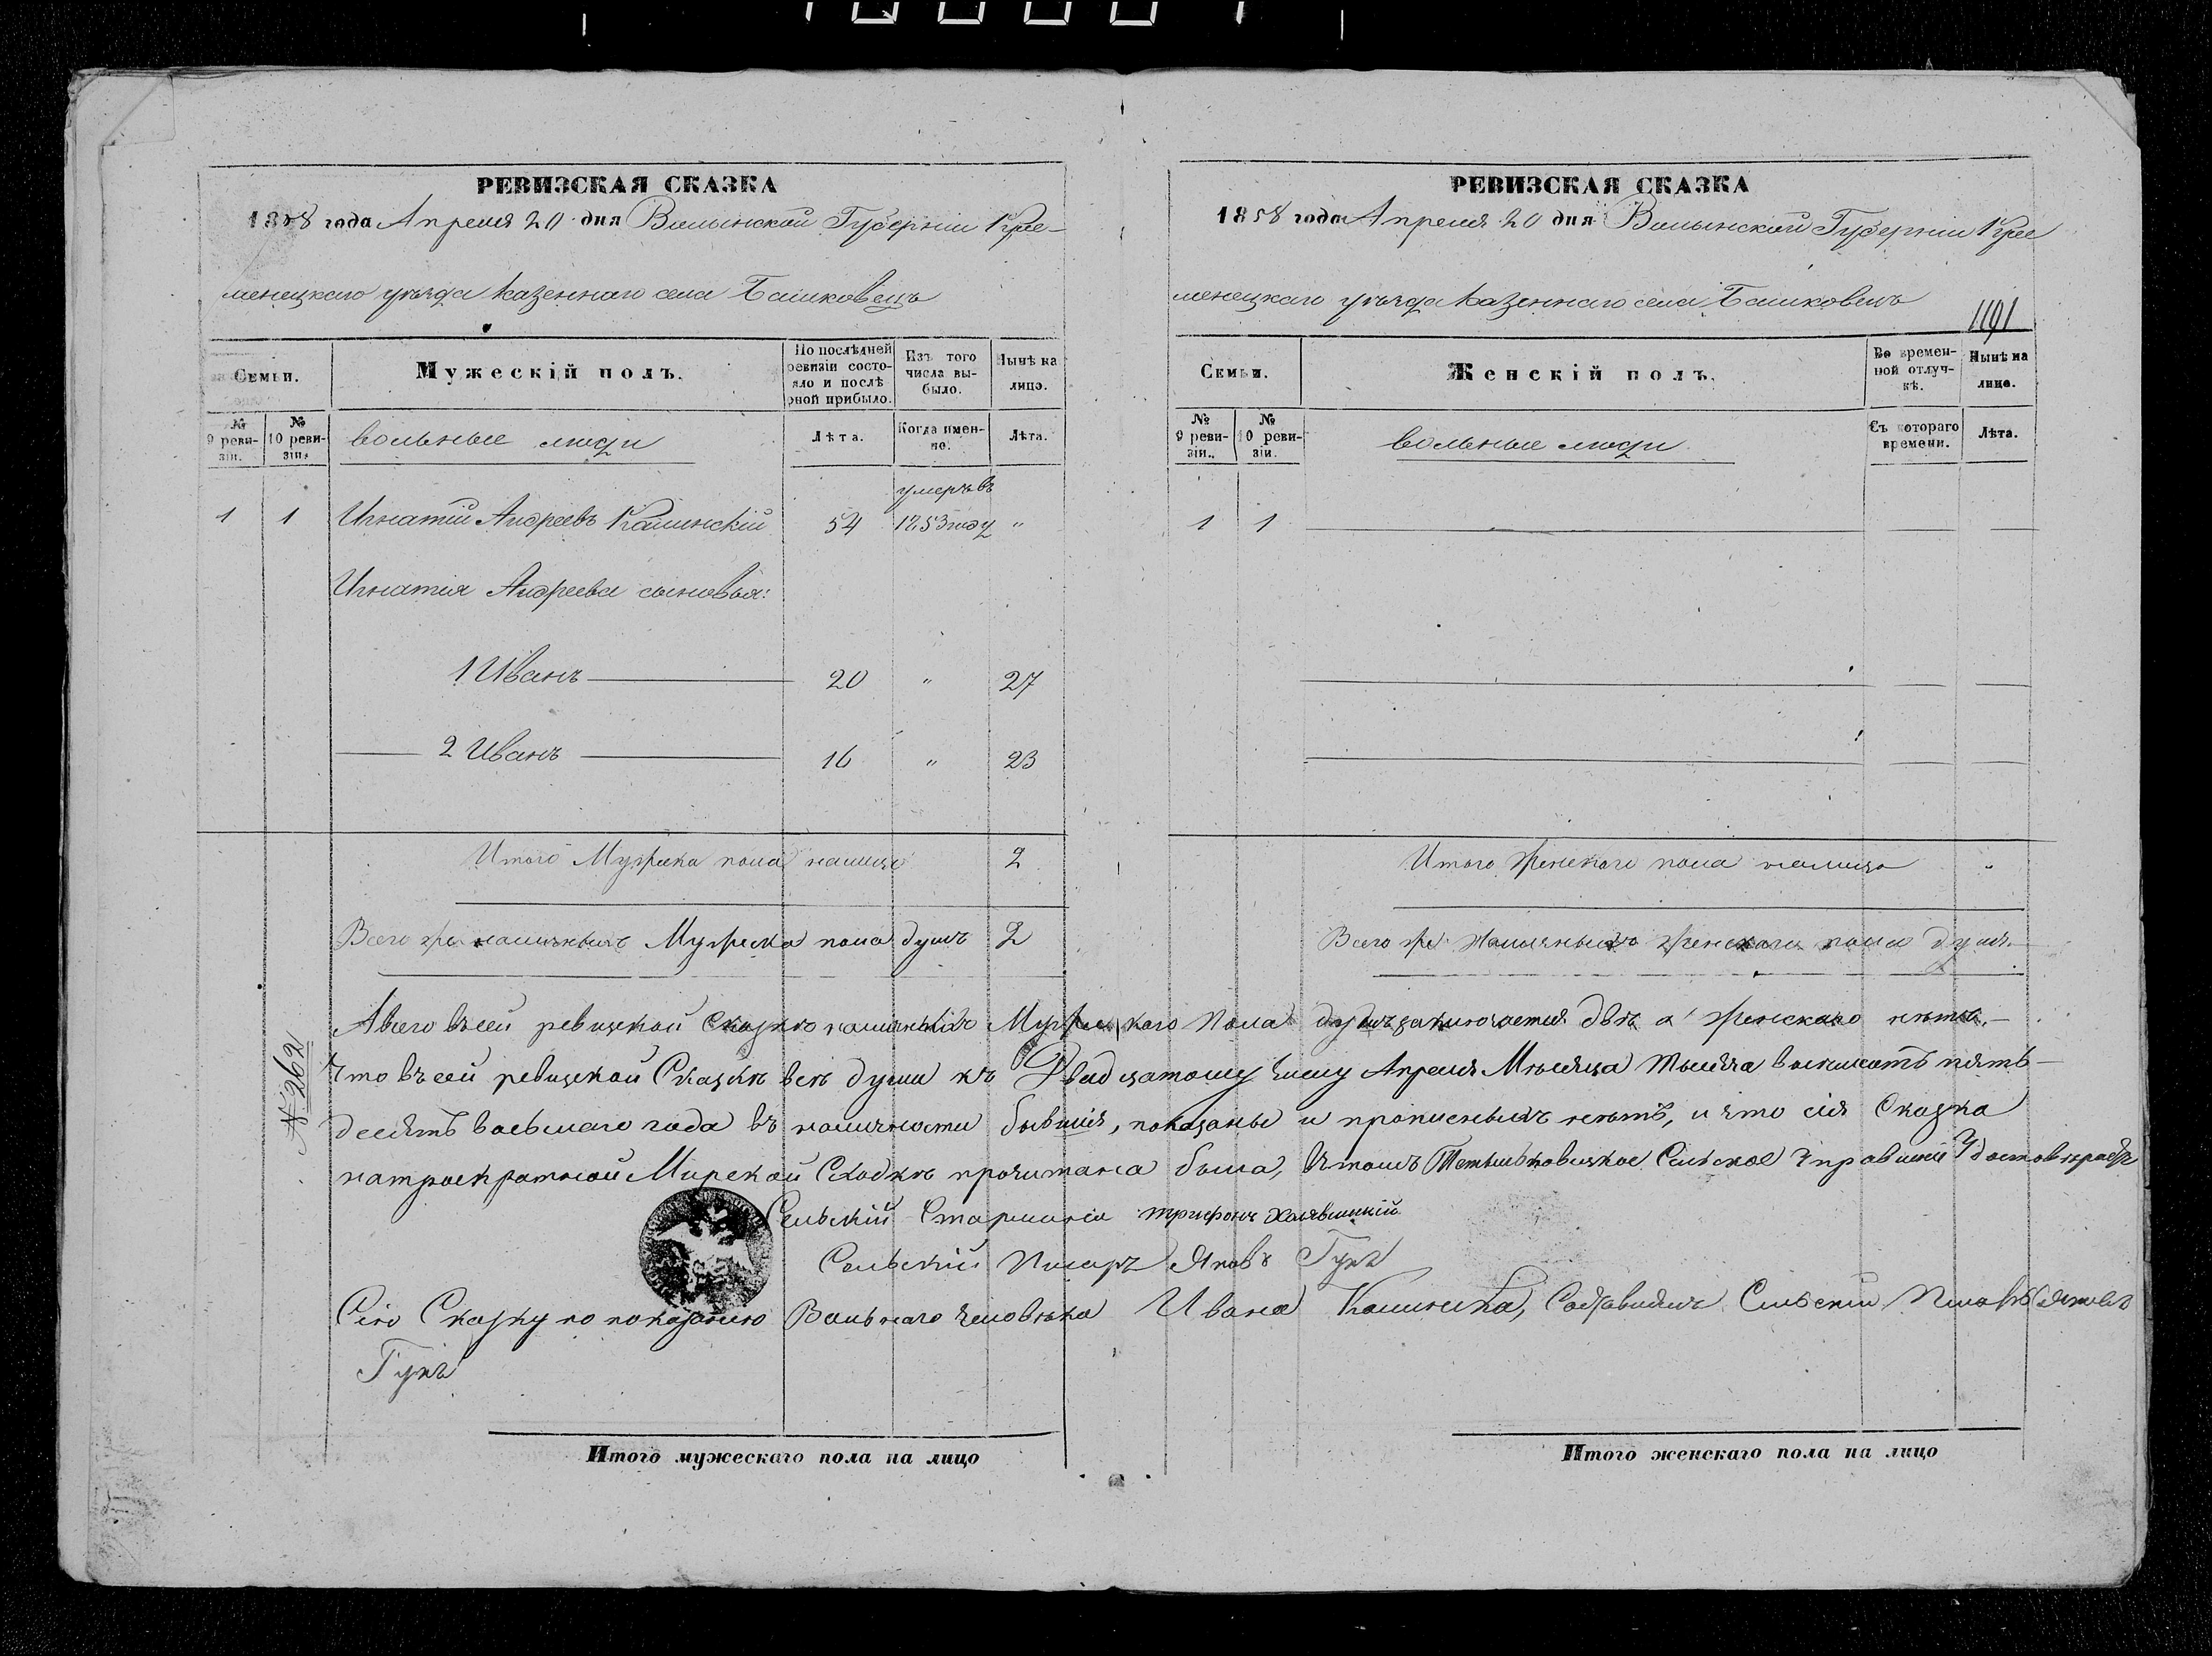 РЕВИЗСКАЯ СКАЗКА
1858 года Апреля 20 дня Волынской Губерніи Кре-
менецкаго уѣзда казеннаго села Башковецъ
Семьи.
Мужескій полъ.
По послѣдней ревизіи состояло и послѣ оной прибыло.
Изъ того числа выбыло.
Нынѣ на лицо.
№ 9 ревизіи.
№ 10 ревизіи.
вольные люди
Лѣта.
Когда именно.
Лѣта.
умеръ въ
1 1 Игнатій Андреевъ Калинскій 54 1853 году "
Игнатія Андреева сыновья:
1 Иванъ 20 " 27
2 Иванъ 16 " 23
Итого Мужска пола налицо 2
Всего же наличныхъ Мужска пола душъ 2
РЕВИЗСКАЯ СКАЗКА
1858 года Апреля 20 дня Волынской Губерніи Кре
менецкаго уѣзда казеннаго села Башковецъ
1191
Семьи.
Женскій полъ.
Во временной отлучкѣ.
Нынѣ на лицо.
№ 9 ревизіи.
№ 10 ревизіи.
вольные люди
Съ котораго времени.
Лѣта.
1 1
Итого женскаго пола налицо "
Всего же наличныхъ женскаго пола душъ
А всего въ сей ревизской Сказкѣ наличныхъ Мужескаго пола душъ заключается двѣ а женскаго нѣтъ.
Что въ сей ревизской Сказкѣ всѣ души къ Двадцатому числу Апреля Мѣсяца тысяча восемьсотъ пять-
десятъ восьмаго года въ наличности бывшія, показаны и прописныхъ нѣтъ, и что сія Сказка
на троекратной Мирской Сходкѣ прочитана была, в томъ Сельское Управленіе Удостовѣряетъ
Сельскій Старшина Трифонъ
Сельскій Писарь Яковъ Гукъ
Сію Сказку по показанію Вольнаго человѣка Ивана Составилъ Сельскій Писарь Яковъ
Гукъ
№ 262
Итого мужескаго пола на лицо
Итого женскаго пола на лицо